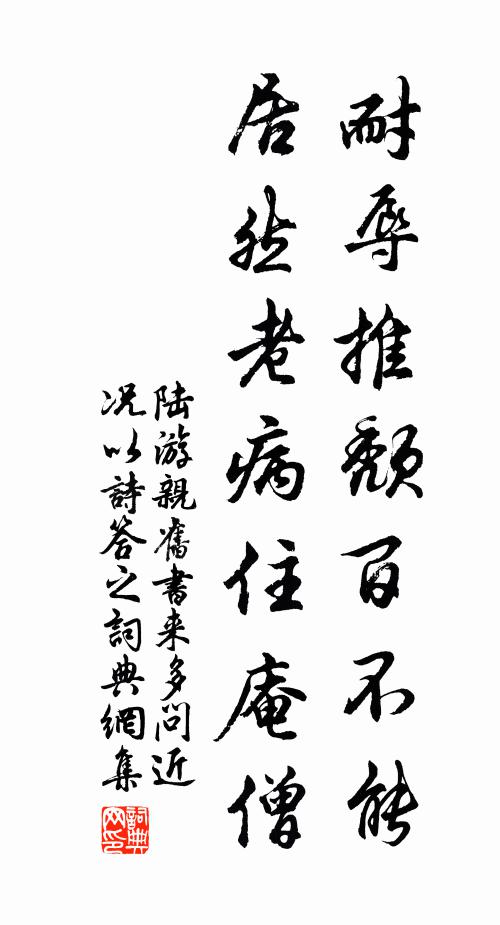 耐辱推頹百不能
居然老病住庵僧
陆游親舊書来多問近
况以詩答之詞典網集
詞典
网印